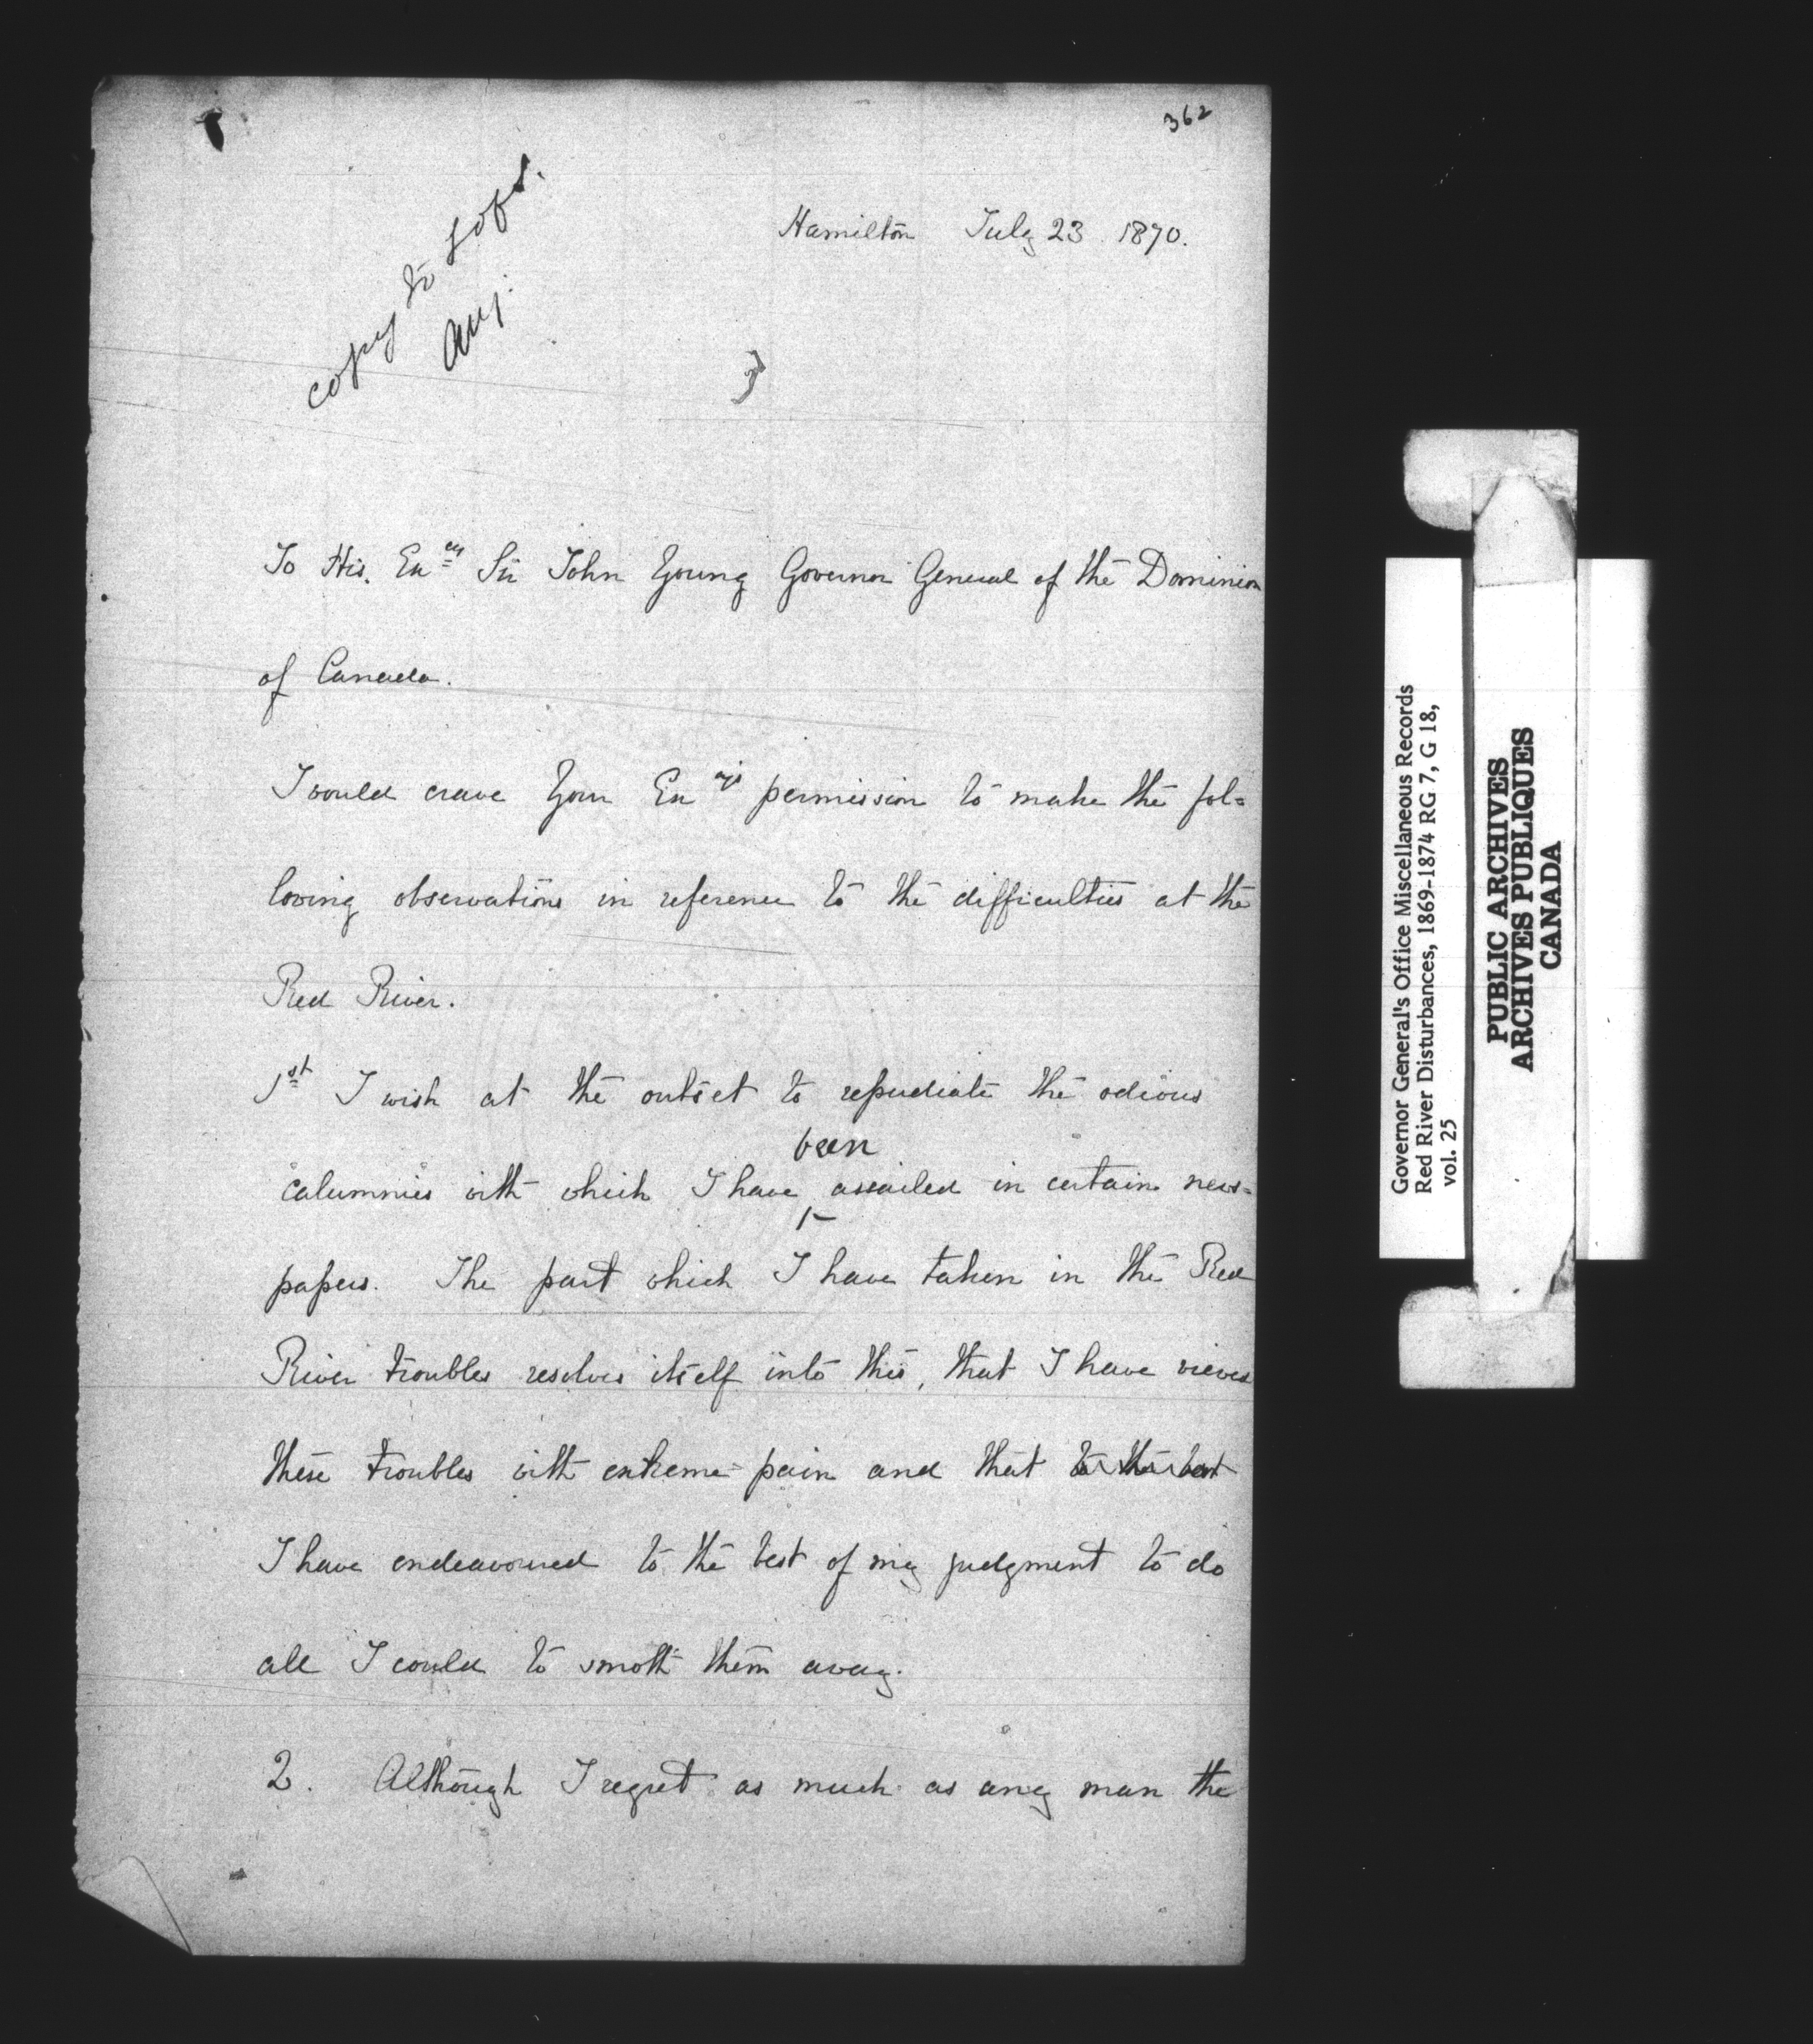 362
copy to sofs.
Aug.
Hamilton July 23 1870.
To His Excy Sir John Young Governor General of the Dominion
of Canada.
I would crave Your Excy's permission to make the fol=
lowing observations in reference to the difficulties at the
Red River.
1st I wish at the outset to repudiate the odious
been
calumnies with which I have assailed in certain news=
papers. The part which I have taken in the Red
River troubles resolves itself into this, that I have viewed
these troubles with extreme pain and that to the best
I have endeavoured to the best of my judgment to do
all I could to smoth them away.
2. Although I regret as much as any man the
Governor General's Office Miscellaneous Records
Red River Disturbances, 1869-1874 RG 7, G 18,
vol. 25
PUBLIC ARCHIVES
ARCHIVES PUBLIQUES
CANADA